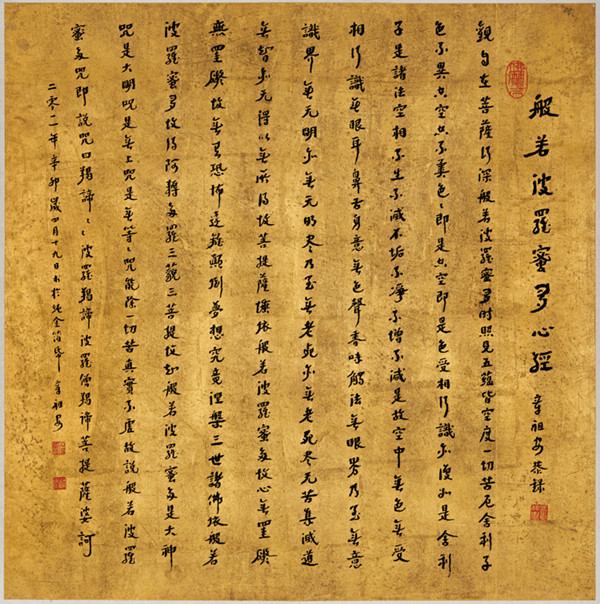 般若波羅蜜多心經 章祖安恭録
觀自在菩薩行深般若波羅蜜多時照見五蘊皆空度一切苦厄舍利子
色不異空空不異色〻即是空空即是色受相行識亦復如是舍利
子是諸法空相不生不滅不垢不淨不增不減是故空中無色無受
相行識無眼耳鼻舌身意無色聲香味觸法無眼界乃至無意
識界無无明亦無无明盡乃至無老死亦無老死盡无苦集滅道
無智亦无得以無所得故菩提薩埵依般若波羅蜜多故心無罣礙
無罣礙故無有恐怖遠離顛倒夢想究竟涅槃三世諸佛依般若
波羅蜜多故得阿耨多羅三藐三菩提故知般若波羅蜜多是大神
咒是大明咒是無上咒是無等〻咒能除一切苦真實不虛故說般若波羅
蜜多咒即說咒曰羯諦〻〻波羅羯諦波羅僧羯諦菩提薩婆訶
二零一一年辛卯歲四月十九日書於純金箔紙 章祖安